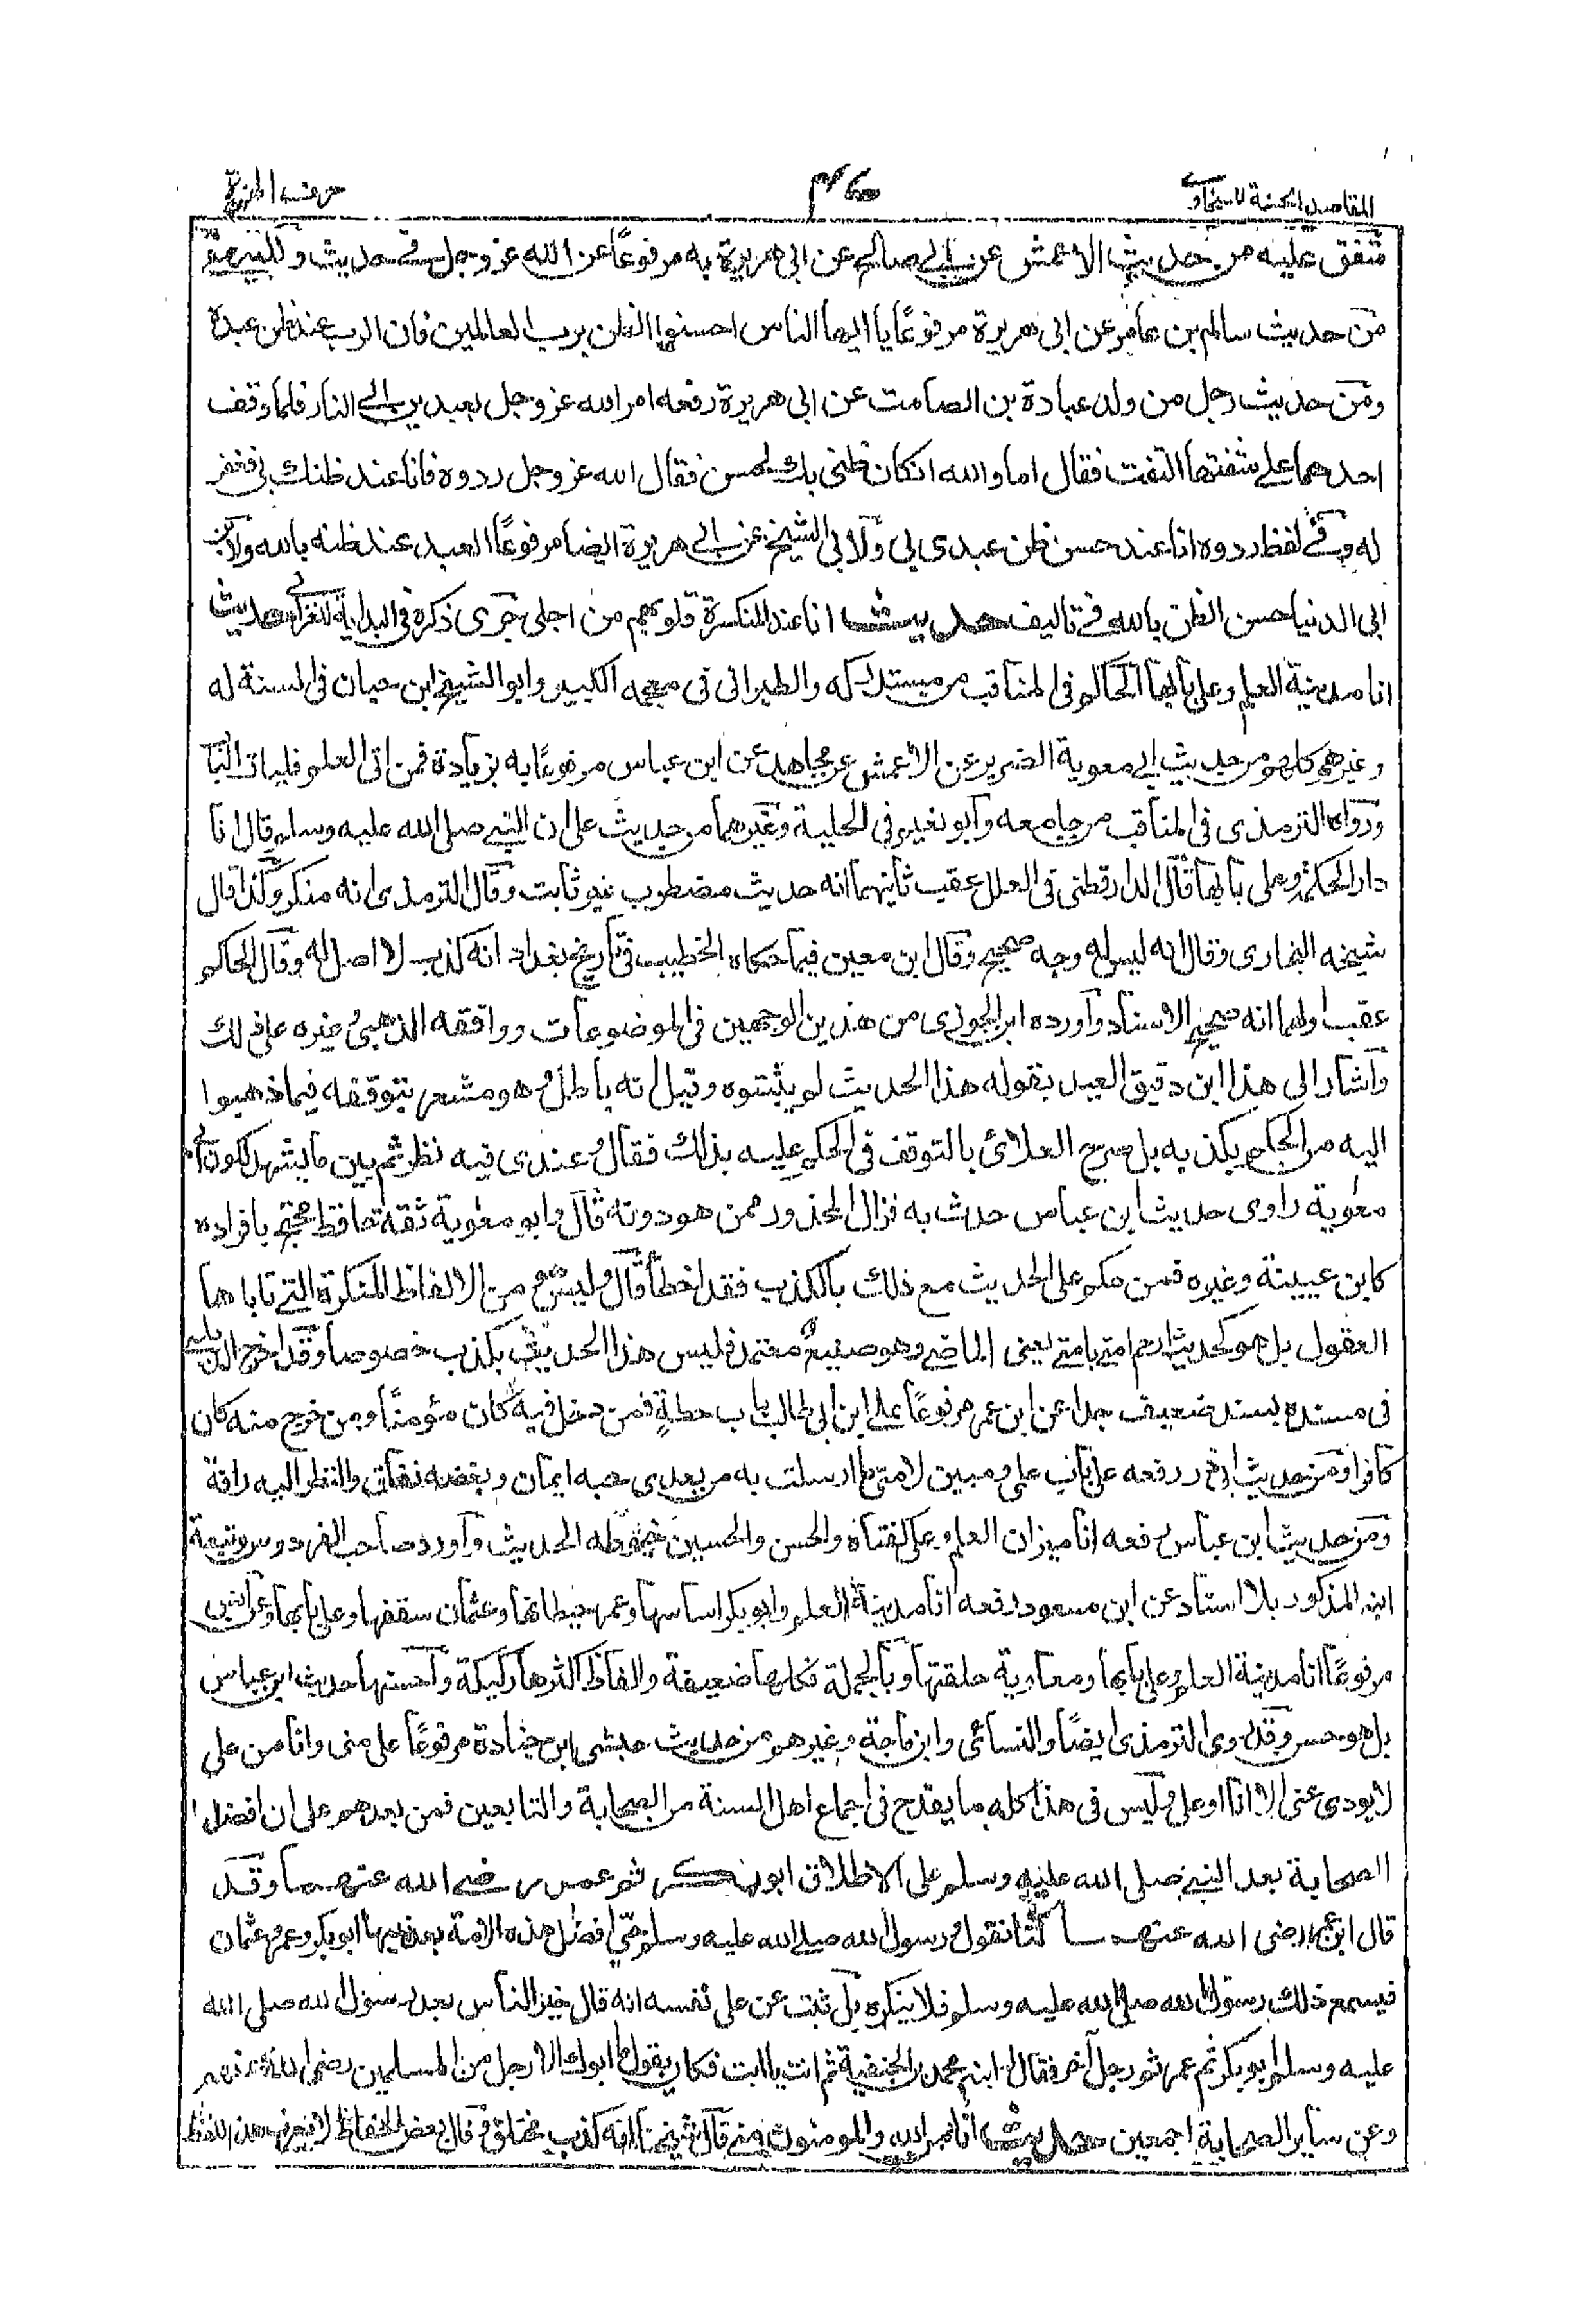 المقاصد الحسنة للسخاوي
حرف الهمزة
متفق عليه من حديث الاعمش عن ابي صالح عن ابي هريرة به مرفوعًا عن الله عز وجل في حديث وللبيهقي
من حديث سالم بن عامر عن ابي هريرة مرفوعًا يا ايها الناس احسنوا الظن برب العالمين فان الرب عند ظن عبده
ومن حديث رجل من ولد عبادة بن الصامت عن ابي هريرة رفعه امر الله عز وجل بعبدين الى النار فلما وقف
احدهما على شفتها التفت فقال اما والله ان كان ظني بك لحسن فقال الله عز وجل ردوه فانا عند ظنك بي فغفر
له وفي لفظ ردوه انا عند حسن ظن عبدي بي ولابي الشيخ عن ابي هريرة ايضا مرفوعًا العبد عند ظنه بالله ولابن
ابي الدنيا حسن الظن بالله في تاليف حديث انا عند المنكسرة قلوبهم من اجلي جرى ذكره في البداية للغزالي حديث
انا مدينة العلم وعلي بابها الحاكم في المناقب من مستدركه والطبراني في معجمه الكبير وابو الشيخ ابن حيان في السنة له
وغيرهم كلهم من حديث ابي معوية الضرير عن الاعمش عن مجاهد عن ابن عباس مرفوعًا به بزيادة فمن اتى العلم فليات الباب
ورواه الترمذي في المناقب من جامعه وابو نعيم في الحلية وغيرهما من حديث علي ان النبي صلى الله عليه وسلم قال انا
دار الحكمة وعلي بابها قال الدارقطني في العلل عقب ثانيهما انه حديث مضطرب غير ثابت وقال الترمذي انه منكر وكذا قال
شيخه البخاري وقال انه ليس له وجه صحيح وقال ابن معين فيما حكاه الخطيب في تاريخ بغداد انه كذب لا اصل له وقال الحاكم
عقب اولهما انه صحيح الاسناد واورده ابن الجوزي من هذين الوجهين في الموضوعات ووافقه الذهبي وغيره على ذلك
واشار الى هذا ابن دقيق العيد بقوله هذا الحديث لم يثبتوه وقيل انه باطل وهو مشعر بتوقفه فيما ذهبوا
اليه من الحكم بكذبه بل صرح العلائي بالتوقف في الحكم عليه بذلك فقال وعندي فيه نظر ثم بين ما يشهد لكون ابي
معوية راوي حديث ابن عباس حدث به فزال المحذور ممن هو دونه قال وابو معوية ثقة حافظ محتج بافراده
كابن عيينة وغيره فمن حكم على الحديث مع ذلك بالكذب فقد اخطأ قال وليس هو من الالفاظ المنكرة التي تاباها
العقول بل هو كحديث ارحم امتي بامتي يعني الماضي وهو صنيع معتمد فليس هذا الحديث بكذب خصوصا وقد اخرج الديلمي
في مسنده بسند ضعيف جدا عن ابن عمر مرفوعًا علي ابن ابي طالب باب حطة فمن دخل فيه كان مؤمنًا ومن خرج منه كان
كافرا ومن حديث ابي ذر رفعه علي باب علمي ومبين لامتي ما ارسلت به من بعدي حبه ايمان وبغضه نفاق والنظر اليه رافة
ومن حديث ابن عباس رفعه انا ميزان العلم وعلي كفتاه والحسن والحسين خيوطه الحديث واورد صاحب الفردوس وتبعه
ابنه المذكور بلا اسناد عن ابن مسعود رفعه انا مدينة العلم وابو بكر اساسها وعمر حيطانها وعثمان سقفها وعلي بابها وعن انس
مرفوعًا انا مدينة العلم وعلي بابها ومعاوية حلقتها وبالجملة فكلها ضعيفة والفاظ اكثرها ركيكة واحسنها حديث ابن عباس
بل هو حسن وقد روى الترمذي ايضًا والنسائي وابن ماجة وغيرهم من حديث حبشي ابن جنادة مرفوعًا علي مني وانا من علي
لا يودي عني الا انا او علي وليس في هذا كله ما يقدح في اجماع اهل السنة من الصحابة والتابعين فمن بعدهم على ان افضل
الصحابة بعد النبي صلى الله عليه وسلم على الاطلاق ابو بكر ثم عمر رضي الله عنهما وقد
قال ابن عمر رضي الله عنهما كنا نقول ورسول الله صلى الله عليه وسلم حي افضل هذه الامة بعد نبيها ابو بكر وعمر وعثمان
فيسمع ذلك رسول الله صلى الله عليه وسلم فلا ينكره بل ثبت عن علي نفسه انه قال خير الناس بعد رسول الله صلى الله
عليه وسلم ابو بكر ثم عمر ثم رجل آخر فقال له ابنه محمد بن الحنفية ثم انت يا ابت فكان يقول ما ابوك الا رجل من المسلمين رضي الله عنهم
وعن ساير الصحابة اجمعين حديث انا من الله والمومنون مني قال شيخنا انه كذب مختلق وقال بعض الحفاظ لا يعرف بهذا اللفظ